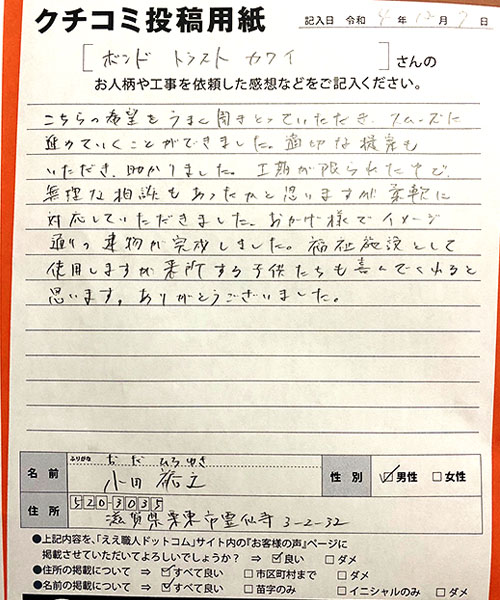 クチコミ投稿用紙
記入日 令和 4 年 12月 7日
[ボンド トラスト カワイ]さんの
お人柄や工事を依頼した感想などをご記入ください。
こちらの希望をうまく聞きとっていただき、スムーズに
進めていくことができました。適切な提案も
いただき、助かりました。工期が限られた中で、
無理な相談もあったかと思いますが柔軟に
対応していただきました。おかげ様でイメージ
通りの建物が完成しました。福祉施設として
使用しますが来所する子供たちも喜んでくれると
思います。ありがとうございました。
ふりがな おだ ひろゆき
名前 小田
性別 ☑男性 □女性
住所 520-3035
滋賀県栗東市霊仙寺 3-2-32
●上記内容を、「ええ職人ドットコム」サイト内の『お客様の声』ページに
掲載させていただいてよろしいでしょうか? ⇒ ☑良い □ダメ
●住所の掲載について ⇒ ☑すべて良い □市区町村まで □ダメ
●名前の掲載について ⇒ ☑すべて良い □苗字のみ □イニシャルのみ □ダメ